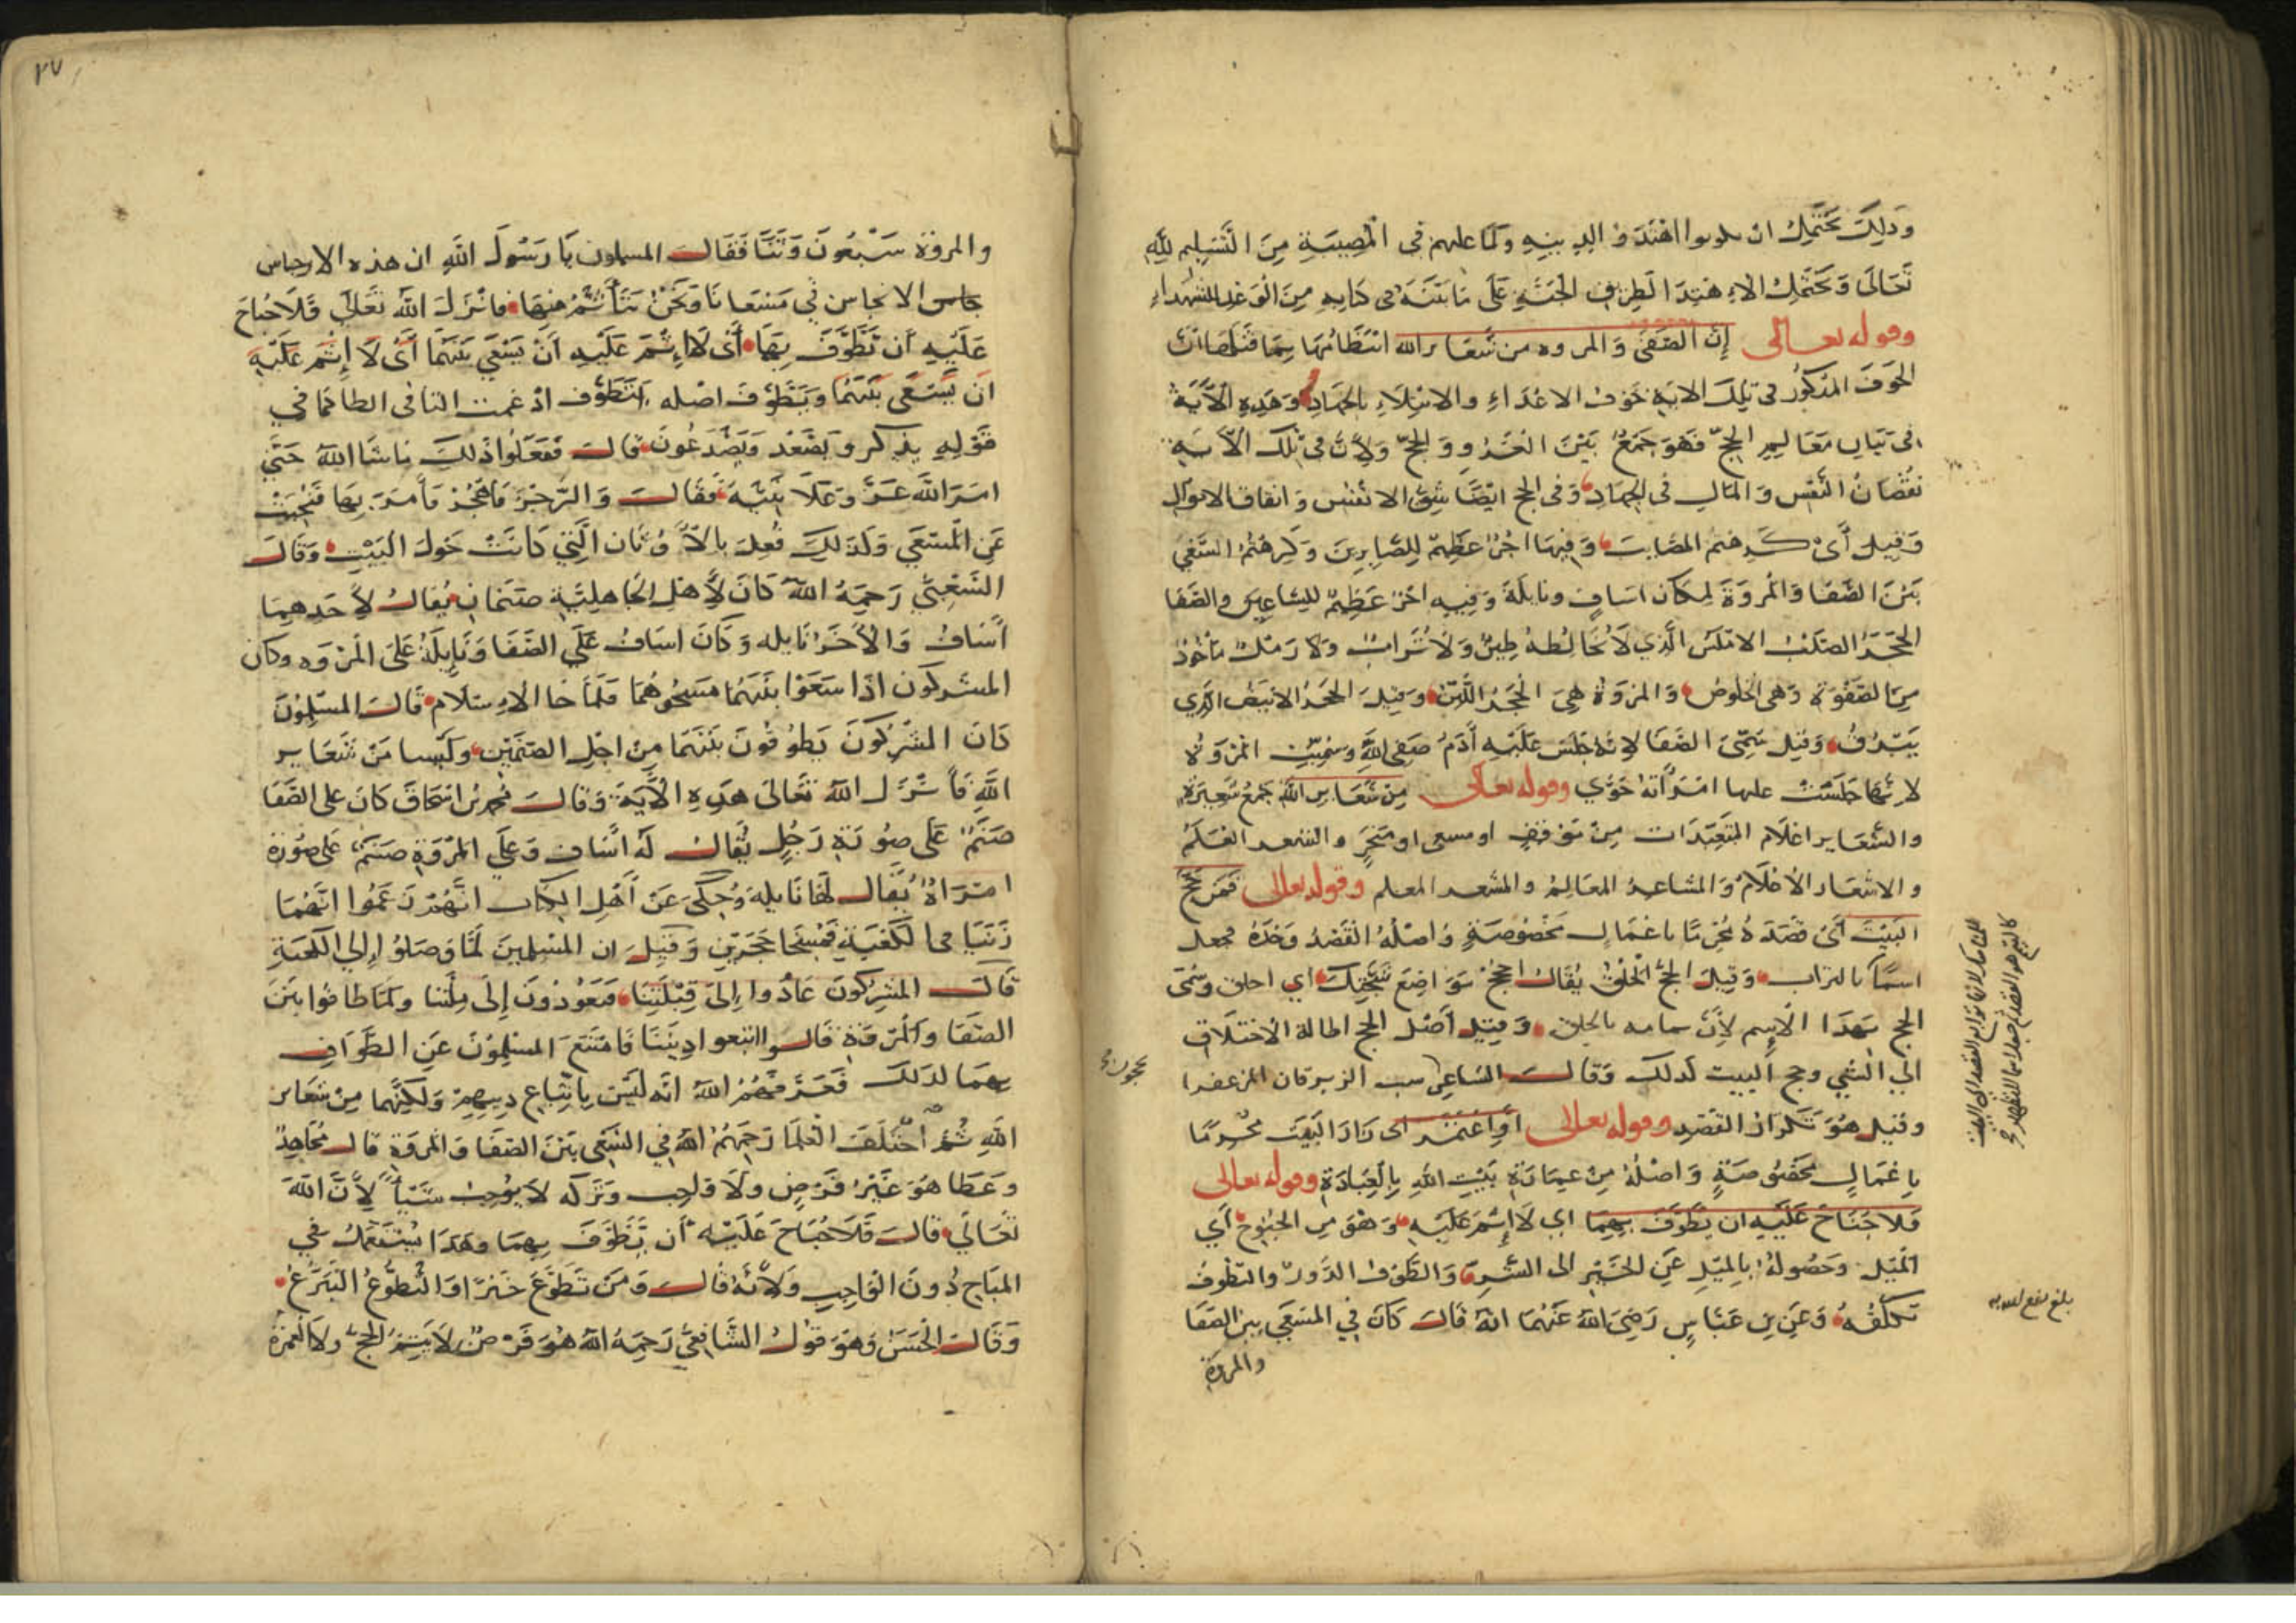 وذلك يحتمل ان يكونوا اهتدوا الدينه وكما عليهم في المصيبة من التسليم لله
تعالى ويحتمل الاهتدا لطريق الجنة على ما بينه في كتابه من الوعد للشهداء
وقوله تعالى إن الصفى والمروه من شعاير الله انتظامها بما قبلها ان
الخوف المذكور في تلك الاية خوف الاعداء والابتلاء بالجهاد وهذه الآية
في بيان معالم الحج فهو جمع بين الغزو والحج ولان في تلك الآية
نقصان النفس والمال في الجهاد وفي الحج ايضا شق الانفس وانفاق الاموال
وقيل أي كرهتم المصايب وفيها اجر عظيم للصابرين وكرهتم السعي
بين الصفا والمروة لمكان اساف ونايلة وفيه اجر عظيم للساعين والصفا
الحجر الصلب الاملس الذي لا يخالطه طين ولا تراب ولا رمل ماخوذ
من الصفوة وهي الخلوص والمروة هي الحجر اللين وقيل الحجر الابيض الذي
يبرق وقيل سمي الصفا لانه جلس عليه آدم صفي الله وسميت المروة
لانها جلست عليها امرأته حوي وقوله تعالى من شعاير الله جمع شعيرة
والشعاير اعلام المتعبدات من موقف او مسعى او منحر والشعر العلم
والاشعار الاعلام والمشاعر المعالم والمشعر المعلم وقوله تعالى فمن حج
البيت أي قصده محرما باعمال مخصوصة واصله القصد وحده فجعل
اسما كالتراب وقيل الحج الحلق يقال احجج مواضع شجتك أي احلق وسمى
الحج بهذا الاسم لأن تمامه بالحلق وقيل أصل الحج اطالة الاختلاف
الي الشي وحج البيت لذلك وقال الشاعر سب الزبرقان المزعفرا
يحجون
وقيل هو تكرار القصد وقوله تعالى أو اعتمر اى زار البيت محرما
باعمال مخصوصة واصله من عمارة بيت الله بالعبادة وقوله تعالى
فلا جناح عليه ان يطوف بهما اي لا إثم عليه وهو من الجنوح أي
الميل وحصوله بالميل عن الخير الى الشر والطوف الدور والتطوف
تكلفه وعن بن عباس رضي الله عنهما انه قال كان في المسعي بين الصفا
والمروة
٢٧
والمروة سبعون وثنا فقال المسلمون يا رسول الله ان هذه الارجاس
الانجاس في مسعانا ونحن نتأثم منها فانزل الله تعالى فلا جناح
عليه أن تطوف بها أى لا إثم عليه أن يسعي بينهما أى لا إثم عليه
ان يسعى بينهما ويطوف اصله يتطوف ادغمت التا في الطا كما في
قوله يذكر ويصعد ويصدعون قال ففعلوا ذلك ما شا الله حتى
امر الله عز وعلا نبيه فقال والرجز فاهجر فأمر بها فنحيت
عن المسعي وكذلك فعل بالاوثان التي كانت حول البيت وقال
الشعبي رحمه الله كان لأهل الجاهلية صنمان يقال لأحدهما
أساف والآخر نايله وكان اساف على الصفا ونايلة على المروه وكان
المشركون اذا سعوا بينهما مسحوهما فلما جا الاسلام قال المسلمون
كان المشركون يطوفون بينهما من اجل الصنمين وليسا من شعاير
الله فانزل الله تعالى هذه الآية وقال محمد بن اسحاق كان على الصفا
صنم على صورة رجل يقال له أساف وعلى المروة صنم على صورة
امرأة يقال لها نايلة وحكي عن أهل الكتاب انهم زعموا انهما
زنيا في الكعبة فمسخا حجرين وقيل ان المسلمين لما وصلوا إلي الكعبة
قال المشركون عادوا إلى قبلتنا فيعودون إلى ملتنا ولما طافوا بين
الصفا والمروة قالوا اتبعوا ديننا فامتنع المسلمون عن الطواف
بهما لذلك فعرفهم الله انه ليس باتباع دينهم ولكنهما من شعاير
الله ثم اختلف العلما رحمهم الله في السعي بين الصفا والمروة قال مجاهد
وعطا هو غير فرض ولا واجب وتركه لا يوجب شيئا لأن الله
تعالي قال فلا جناح عليه أن يطوف بهما وهذا يستعمل في
المباح دون الواجب ولأنه قال ومن تطوع خيرا والتطوع التبرع
وقال الحسن وهو قول الشافعي رحمه الله هو فرض لا يتم الحج ولا العمرة